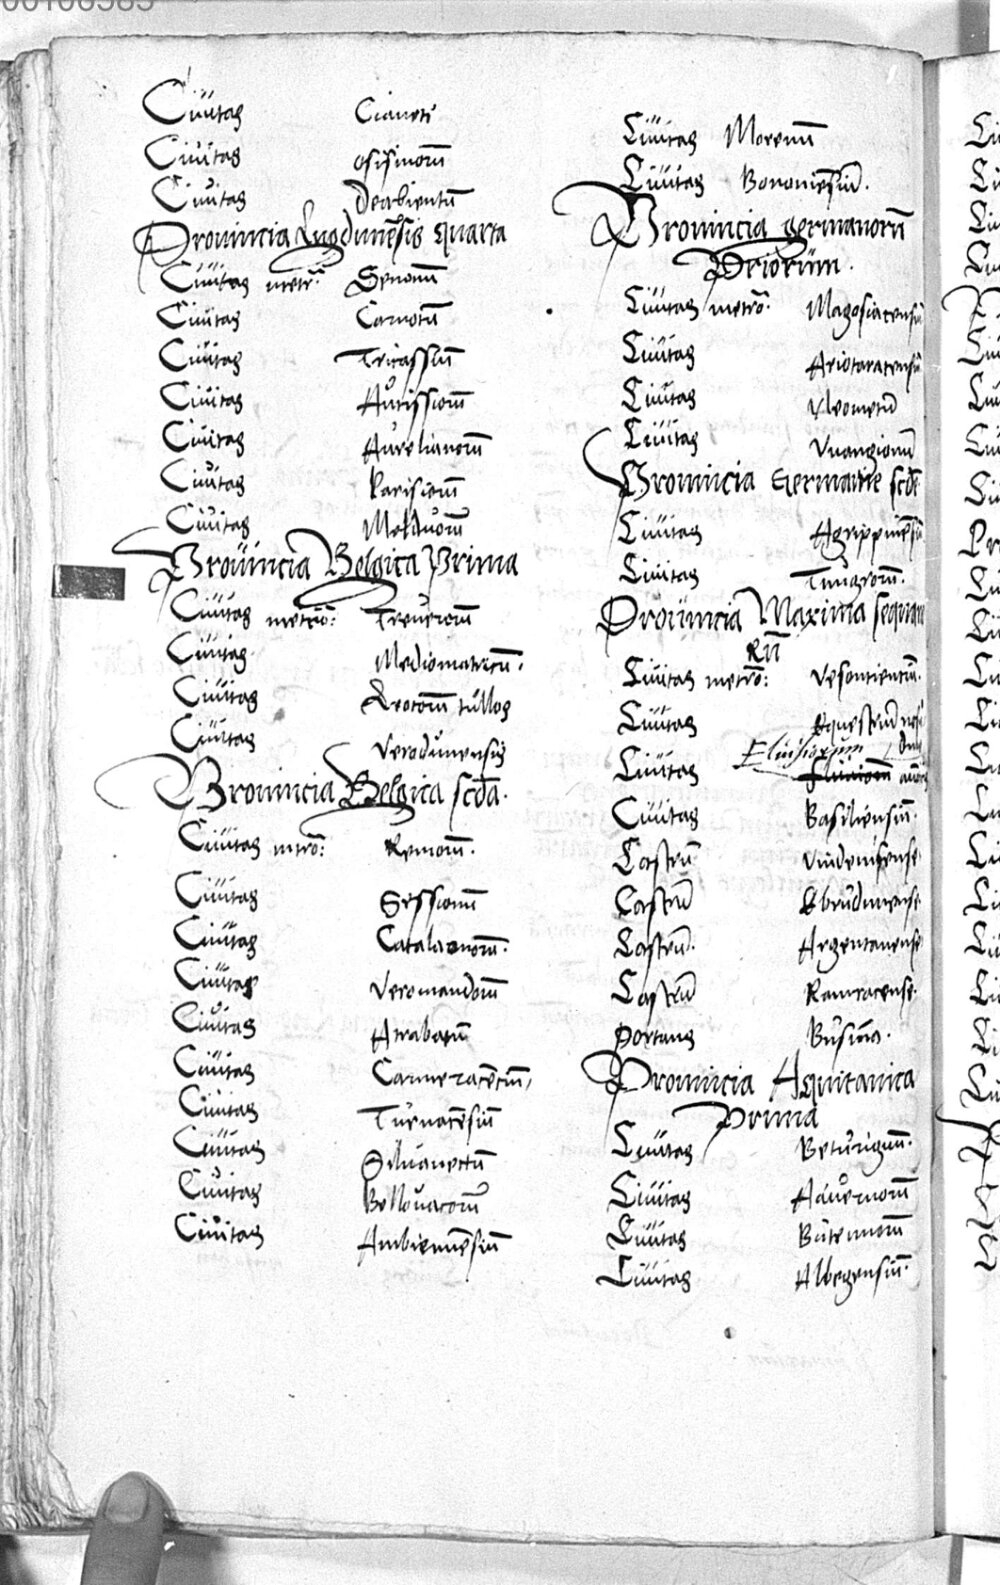 Ciuitas Cianeti
Ciuitas osisinorū
Ciuitas Deabientū
Prouincia Lugdunēsis quarta
Ciuitas metr: Senonū
Ciuitas Carnotū
Ciuitas Tricassiū
Ciuitas Autissiorū
Ciuitas Aurelianorū
Ciuitas Parisiorū
Ciuitas Melduorū
Prouincia Belgica Prima
Ciuitas metro: Treuerorū
Ciuitas Mediomatricū.
Ciuitas Leocorū tullos
Ciuitas Verodunensis
Prouincia Belgica scda.
Ciuitas mtro: Remorū.
Ciuitas Sessionū
Ciuitas Catalaonorū.
Ciuitas Veromandorū
Ciuitas Atrabatū
Ciuitas Cameracēciū,
Ciuitas Turnacēsiū
Ciuitas Siluanectū
Ciuitas Bellouacorū
Ciuitas Ambienēsiū
Ciuitas Morenū
Ciuitas Bononiēsiū.
Prouincia germanorū
Priorum.
Ciuitas metro: Magosiacensiū
Ciuitas Ariotaratensiū
Ciuitas
Ciuitas Vuangionū
Prouincia Germanie scde
Ciuitas Agrippinēsiū
Ciuitas Tungrorū.
Prouincia Maxima sequano
Rū
Ciuitas metro: Vesontientiū.
Ciuitas Equestriū
Elnisiorum
Ciuitas
Ciuitas Basiliensiū.
Castrū Vindenissense
Castrū Ebrudunense
Castrū. Argentariense
Castrū Rauracense.
Portus Businia.
Prouincia Aquitanica
Prima
Ciuitas Beturigum.
Ciuitas Aduernorū
Ciuitas Butennorū
Ciuitas Albegensiū.